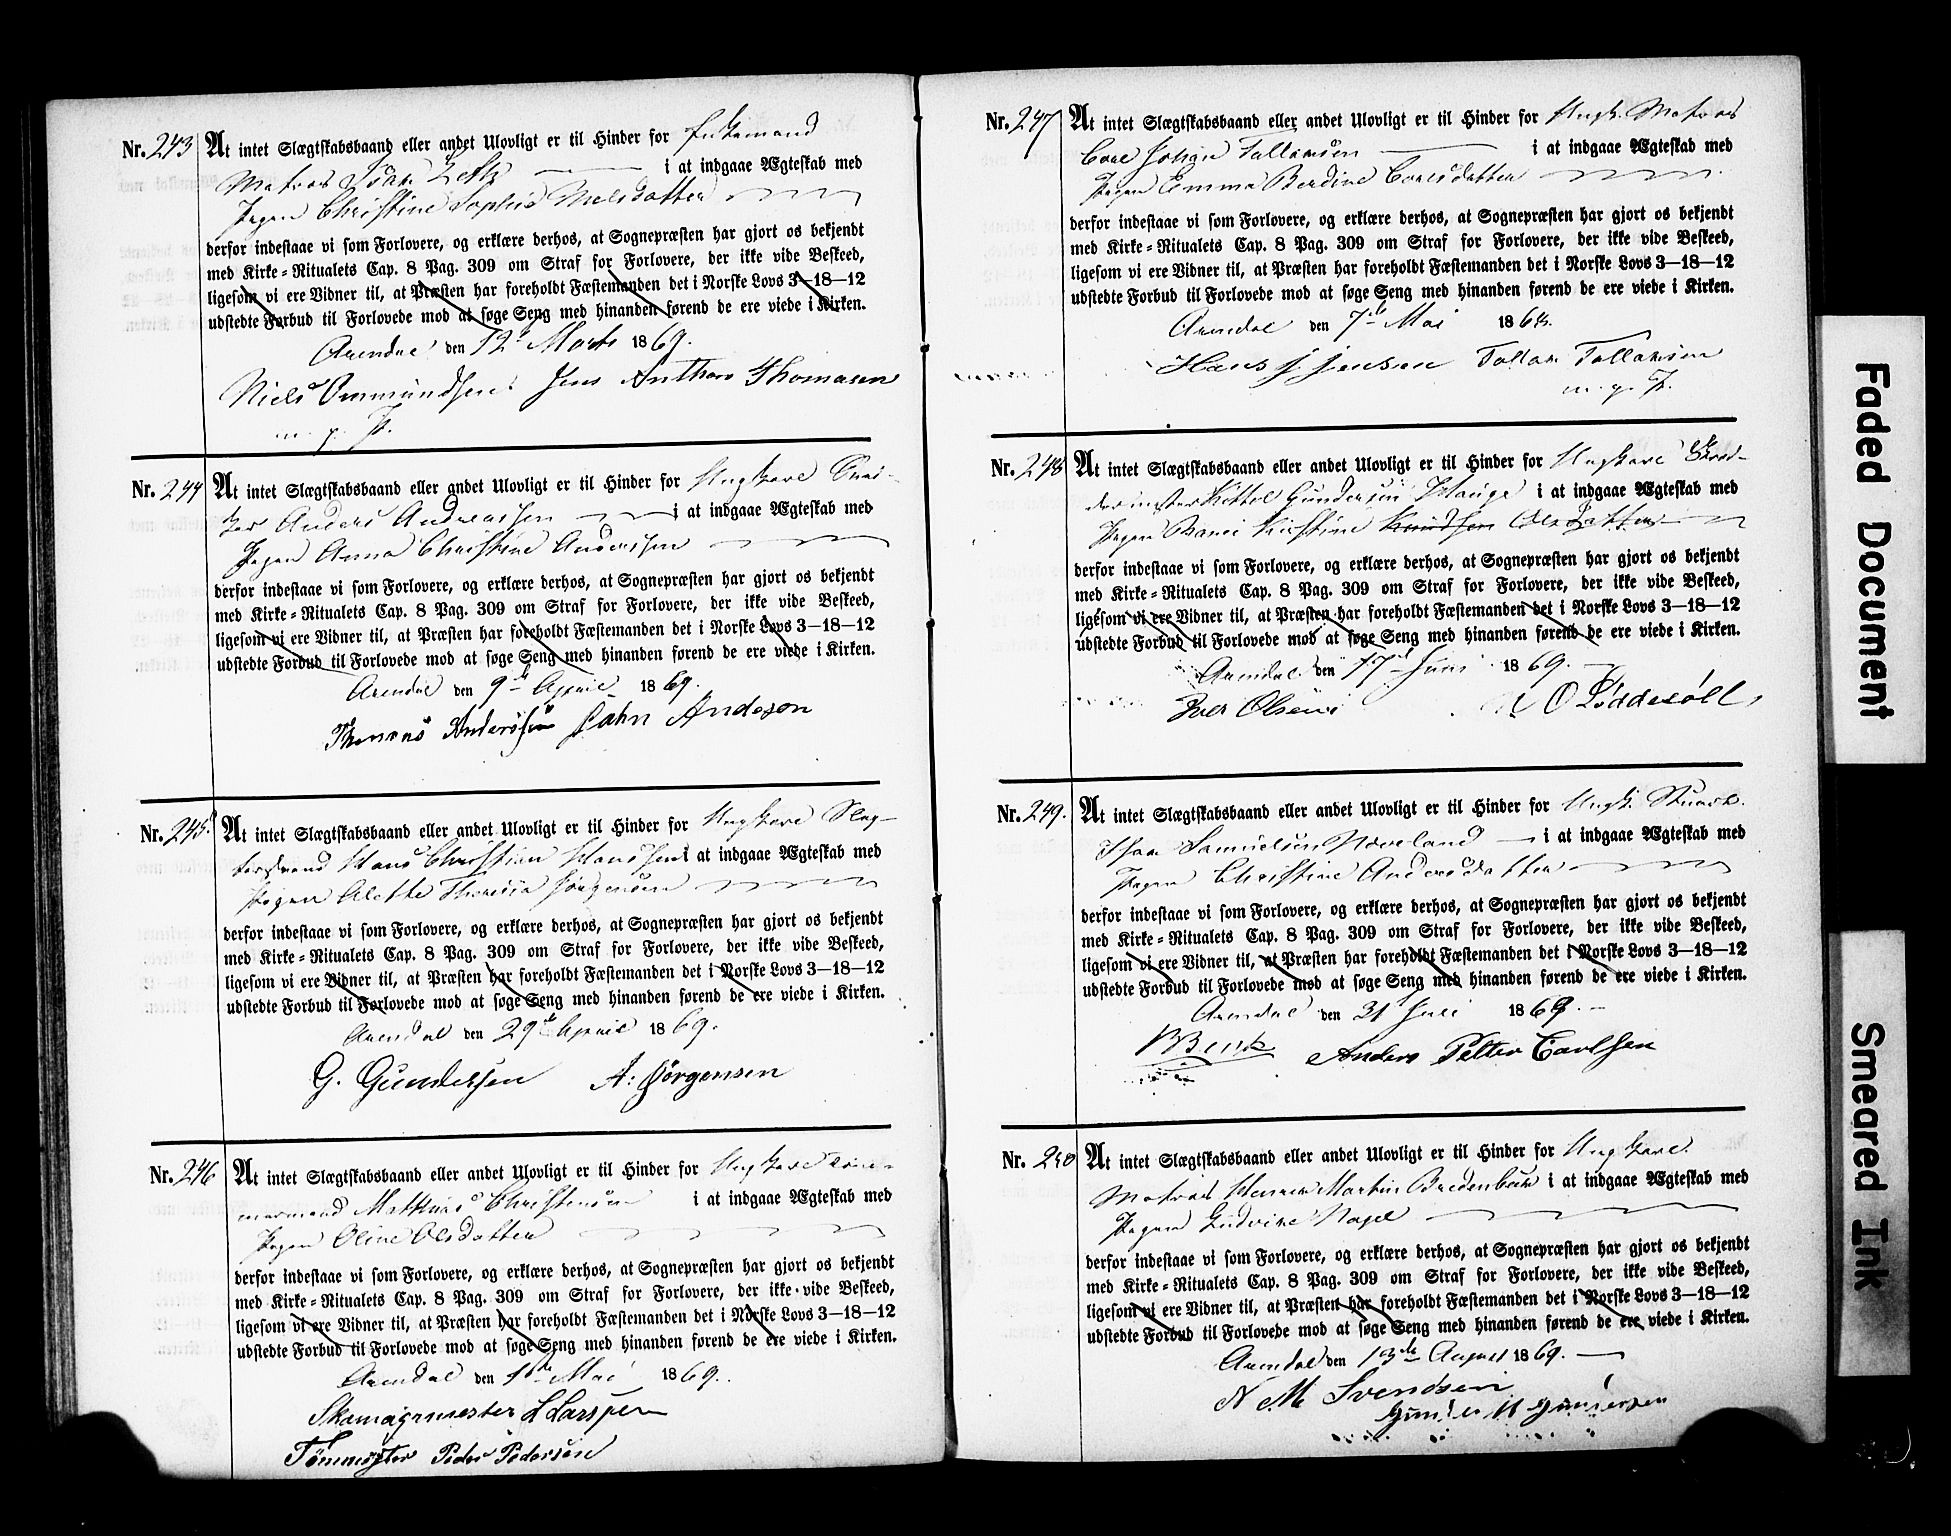 Nr. 243 At intet Slægtskabsbaand eller andet Ulovligt er til Hinder for Enkemand
Matros Isak i at indgaae Ægteskab med
Pigen Christine Sophie Nielsdatter
derfor indestaae vi som Forlovere, og erklære derhos, at Sognepræsten har gjort os bekjendt
med Kirke-Ritualets Cap. 8 Pag. 309 om Straf for Forlovere, der ikke vide Beskeed,
ligesom vi ere Vidner til, at Præsten har foreholdt Fæstemanden det i Norske Lovs 3—18—12
udstedte Forbud til Forlovede mod at søge Seng med hinanden førend de ere viede i Kirken.
Arendal den 12 Marts 1869.
Niels Ommundsen Jens Anthon Thomasen
m. p. P.
Nr. 244 At intet Slægtskabsbaand eller andet Ulovligt er til Hinder for Ungkarl Sned-
ker Anders Andreassen i at indgaae Ægteskab med
Pigen Anna Christine Anderssen
derfor indestaae vi som Forlovere, og erklære derhos, at Sognepræsten har gjort os bekjendt
med Kirke-Ritualets Cap. 8 Pag. 309 om Straf for Forlovere, der ikke vide Beskeed,
ligesom vi ere Vidner til, at Præsten har foreholdt Fæstemanden det i Norske Lovs 3—18—12
udstedte Forbud til Forlovede mod at søge Seng med hinanden førend de ere viede i Kirken.
Arendal den 9de April 1869.
Thomas Anderssen John Andeson
Nr. 245 At intet Slægtskabsbaand eller andet Ulovligt er til Hinder for Ungkarl Slag-
tersvend Hans Christian Hanssen i at indgaae Ægteskab med
Pigen Alette Theresia Jørgensen
derfor indestaae vi som Forlovere, og erklære derhos, at Sognepræsten har gjort os bekjendt
med Kirke-Ritualets Cap. 8 Pag. 309 om Straf for Forlovere, der ikke vide Beskeed,
ligesom vi ere Vidner til, at Præsten har foreholdt Fæstemanden det i Norske Lovs 3—18—12
udstedte Forbud til Forlovede mod at søge Seng med hinanden førend de ere viede i Kirken.
Arendal den 29de April 1869.
G. Gundersen A: Jørgensen
Nr. 246 At intet Slægtskabsbaand eller andet Ulovligt er til Hinder for Ungkarl Tøm-
mermand Mathias Christensen i at indgaae Ægteskab med
Pigen Oline Olsdatter
derfor indestaae vi som Forlovere, og erklære derhos, at Sognepræsten har gjort os bekjendt
med Kirke-Ritualets Cap. 8 Pag. 309 om Straf for Forlovere, der ikke vide Beskeed,
ligesom vi ere Vidner til, at Præsten har foreholdt Fæstemanden det i Norske Lovs 3—18—12
udstedte Forbud til Forlovede mod at søge Seng med hinanden førend de ere viede i Kirken.
Arendal den 1de Mai 1869.
Skomagrmester L Larssen
Tømmester Peder Pedersen
Nr. 247 At intet Slægtskabsbaand eller andet Ulovligt er til Hinder for Ungk. Matros
Carl Johan Tallaksen i at indgaae Ægteskab med
Pigen Emma Berdine Carlsdatter
derfor indestaae vi som Forlovere, og erklære derhos, at Sognepræsten har gjort os bekjendt
med Kirke-Ritualets Cap. 8 Pag. 309 om Straf for Forlovere, der ikke vide Beskeed,
ligesom vi ere Vidner til, at Præsten har foreholdt Fæstemanden det i Norske Lovs 3—18—12
udstedte Forbud til Forlovede mod at søge Seng med hinanden førend de ere viede i Kirken.
Arendal den 7de Mai 186
Hans J Jensen Tallak Tallaksen
m. p. P.
Nr. 248 At intet Slægtskabsbaand eller andet Ulovligt er til Hinder for Ungkarl Skræd-
dermester Kittel Gundersen Hauge i at indgaae Ægteskab med
Pigen Maren Kirstine Knudsen Olsdatter
derfor indestaae vi som Forlovere, og erklære derhos, at Sognepræsten har gjort os bekjendt
med Kirke-Ritualets Cap. 8 Pag. 309 om Straf for Forlovere, der ikke vide Beskeed,
ligesom vi ere Vidner til, at Præsten har foreholdt Fæstemanden det i Norske Lovs 3—18—12
udstedte Forbud til Forlovede mod at søge Seng med hinanden førend de ere viede i Kirken.
Arendal den 17 Juni 1869.
Iver Olsen O Løddesøll
Nr. 249. At intet Slægtskabsbaand eller andet Ulovligt er til Hinder for Ungk. Stuart.
Isaac Samuelsen Hoveland i at indgaae Ægteskab med
Pigen Christine Andersdatter
derfor indestaae vi som Forlovere, og erklære derhos, at Sognepræsten har gjort os bekjendt
med Kirke-Ritualets Cap. 8 Pag. 309 om Straf for Forlovere, der ikke vide Beskeed,
ligesom vi ere Vidner til, at Præsten har foreholdt Fæstemanden det i Norske Lovs 3—18—12
udstedte Forbud til Forlovede mod at søge Seng med hinanden førend de ere viede i Kirken.
Arendal den 31 Juli 1869.
Anders Petter Carlsen
Nr. 250 At intet Slægtskabsbaand eller andet Ulovligt er til Hinder for Ungkarl
Matros Henrik Martin Bredenbeck i at indgaae Ægteskab med
Pigen Ludvike Nagel
derfor indestaae vi som Forlovere, og erklære derhos, at Sognepræsten har gjort os bekjendt
med Kirke-Ritualets Cap. 8 Pag. 309 om Straf for Forlovere, der ikke vide Beskeed,
ligesom vi ere Vidner til, at Præsten har foreholdt Fæstemanden det i Norske Lovs 3—18—12
udstedte Forbud til Forlovede mod at søge Seng med hinanden førend de ere viede i Kirken.
Arendal den 13de August 1869.
N M Svendsen
Gunder H Gundersen
Faded Document
Smeared Ink